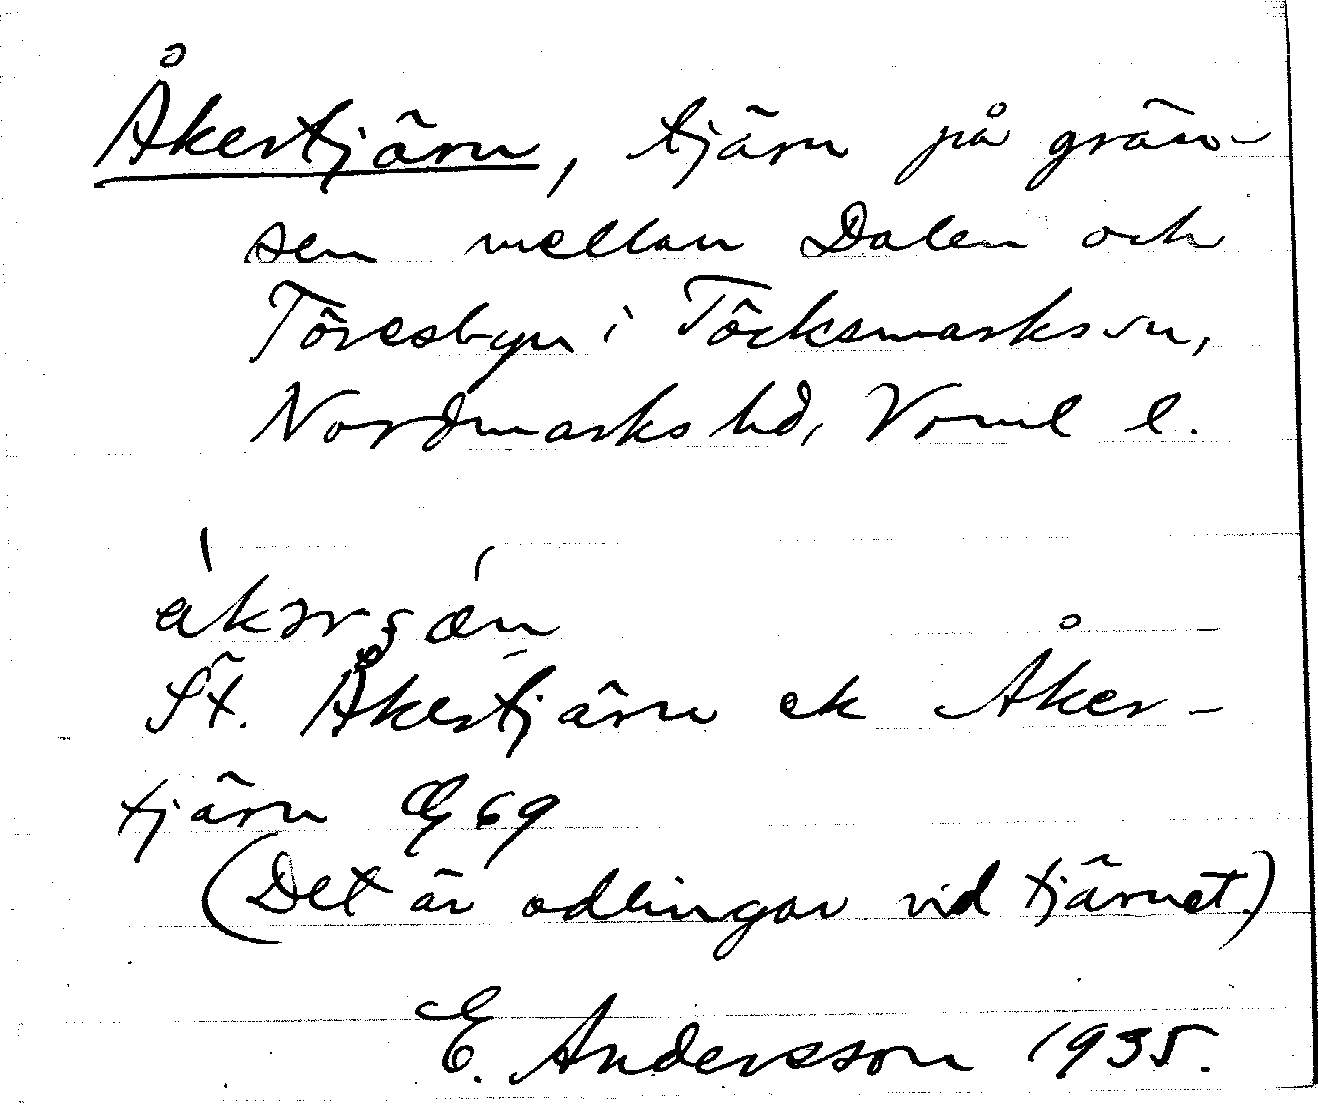 Åkertjärn, tjärn på grän-
sen mellan Dalen och
Töresbyn i Töcksmarks sn,
Nordmarks hd, Vrml l.
St. Åkertjärn ek Åker-
tjärn 69
(Det är odlingar vid tjärnet.)
E. Andersson 1935.